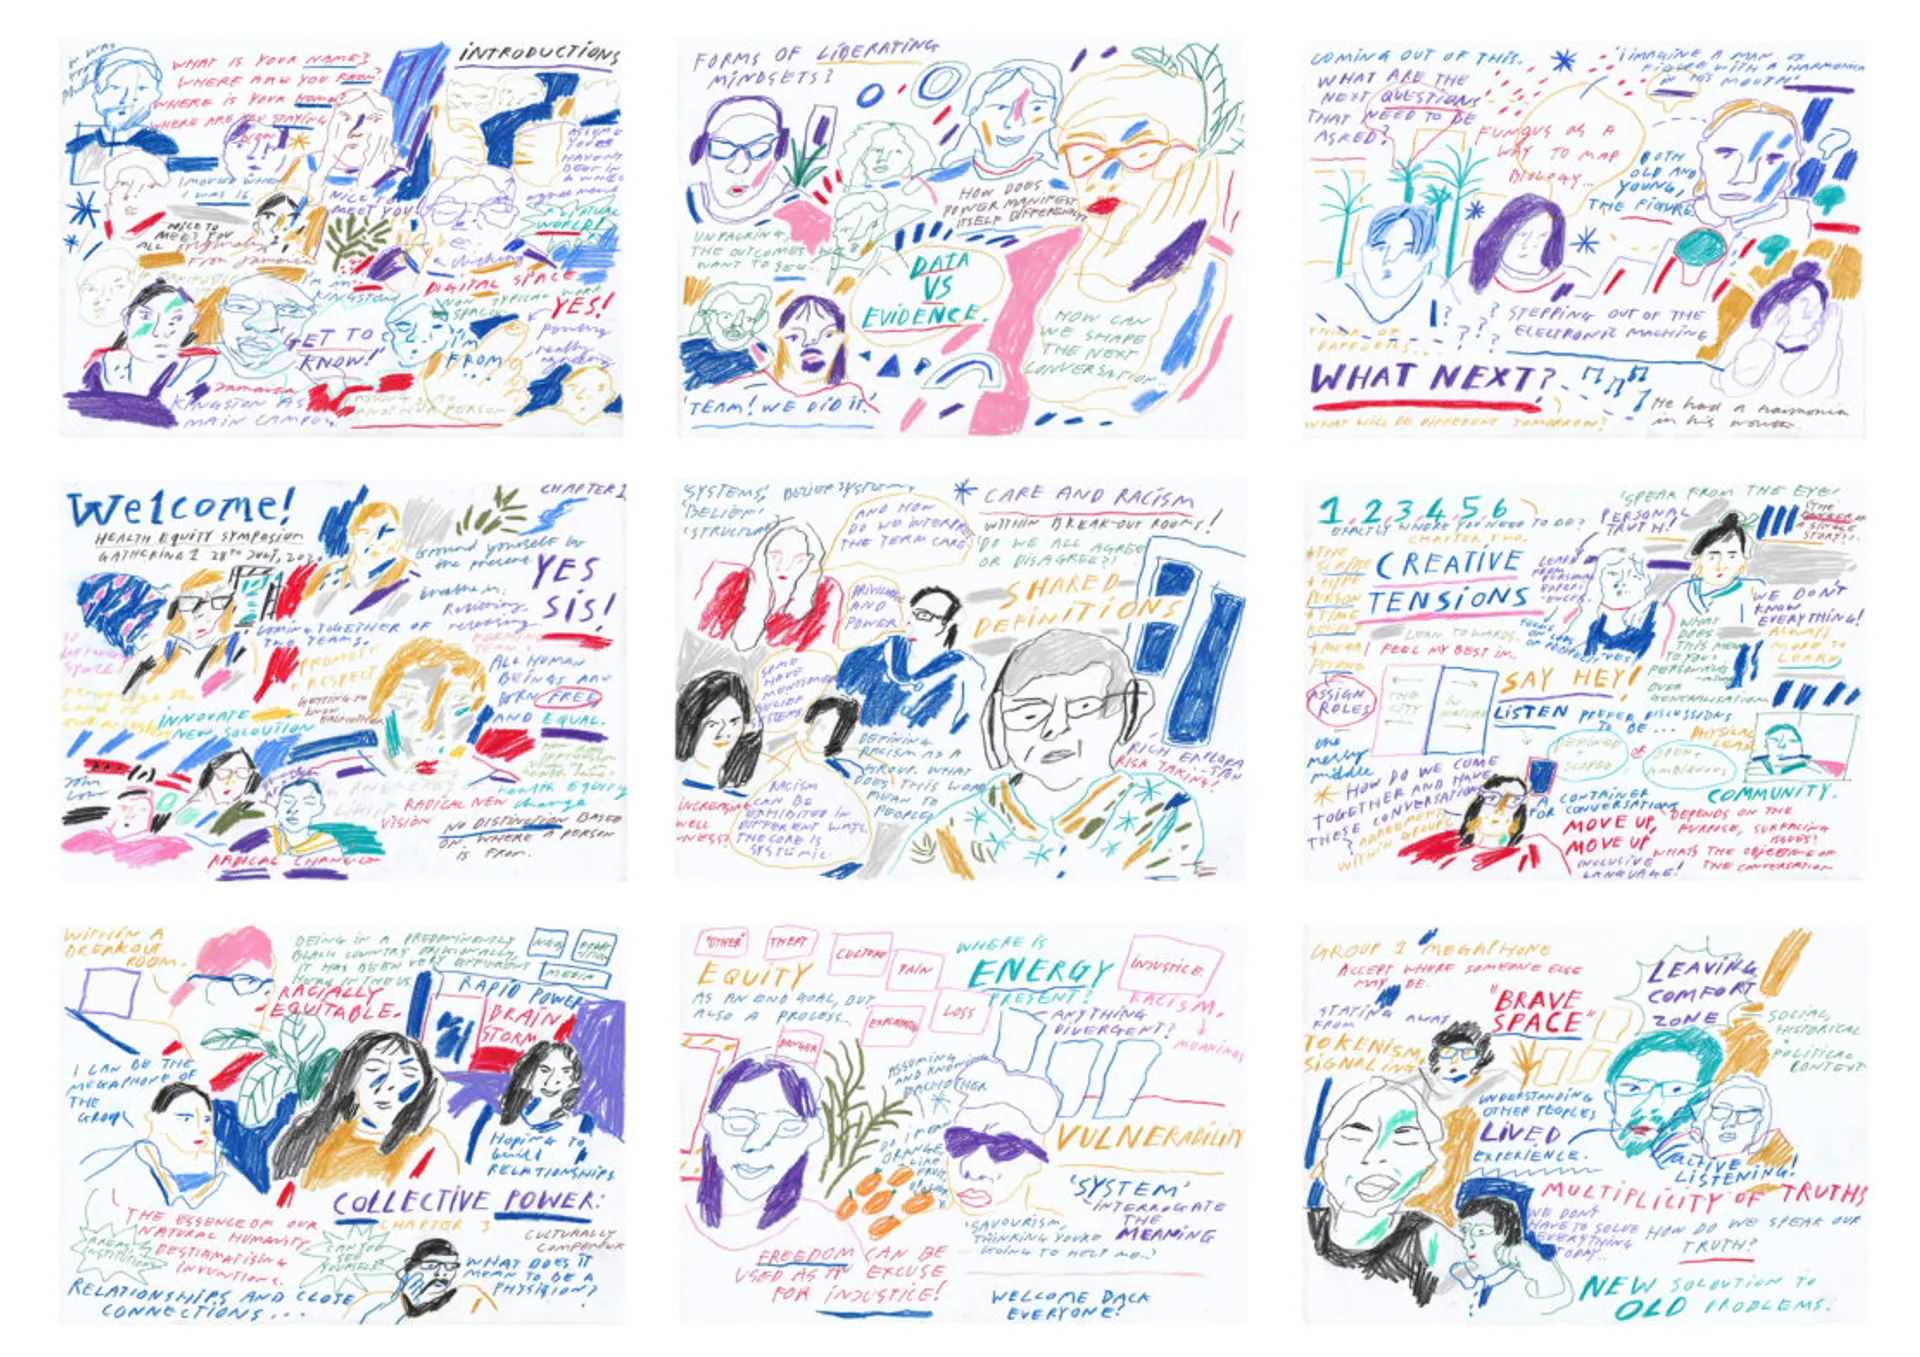 INTRODUCTIONS
WHAT IS YOUR NAME?
WHERE ARE YOU FROM?
WHERE IS YOUR HOME?
WHERE ARE YOU STAYING
I MOVED WHEN
I WAS 15
NICE TO
MEET YOU!
NICE TO
MEET YOU
ALL
From Jamaica
A VIRTUAL
WORLD!
DIGITAL SPACE
NON TYPICAL WORK
SPACE
YES!
I'm in
KINGSTON
'GET TO
KNOW!'
I'M
FROM
...
Jamaica
KINGSTON AS
MAIN CAMPUS
FORMS OF LIBERATING
MINDSETS?
HOW DOES
POWER MANIFEST
ITSELF DIFFERENTLY
UNPACKING
THE OUTCOMES
WANT TO SEE...
DATA
VS
EVIDENCE.
HOW CAN
WE SHAPE
THE NEXT
CONVERSATION...
'TEAM! WE DID IT!'
COMING OUT OF THIS.
WHAT ARE THE
NEXT QUESTIONS
THAT NEED TO BE
ASKED?
'I IMAGINE A MAN OR
FIGURE WITH A HARMONICA
IN HIS MOUTH'
FUNGUS AS A
WAY TO MAP
BIOLOGY...
BOTH
OLD AND
YOUNG,
THE FIGURE
STEPPING OUT OF THE
ELECTRONIC MACHING
DAFFODILS...
WHAT NEXT?
WHAT WILL BE DIFFERENT TOMORROW?
He had a harmonia
in his mouth.
Welcome!
HEALTH EQUITY SYMPOSIUM
GATHERING 1 28TH JULY, 2020.
CHAPTER 1
Ground yourself by
the present
breathe in.
Receiving.
releasing.
YES
SIS!
COMING TOGETHER OF
TWO TEAMS.
PROMOTE
RESPECT
GETTING TO
KNOW EACH OTHER
ALL HUMAN
BEINGS ARE
BORN FREE
AND EQUAL.
INNOVATE
NEW SOLOUTION
RADICAL NEW
VISION
health equity
change
NO DISTINCTION BASED
ON WHERE A PERSON
IS FROM.
RADICAL CHANGE
'SYSTEMS,' BELIEF SYSTEMS,
'BELIEF'
'STRUCTURE'
AND HOW
DO WE INTERPRET
THE TERM CARE
CARE AND RACISM
WITHIN BREAK-OUT ROOMS!
DO WE ALL AGREE
OR DISAGREE?!
PRIVILEGE
AND
POWER
SHARED
DEFINITIONS
SOME
HAVE
MENTIONED
BELIEF
SYSTEMS
DEFINING
RACISM AS A
GROUP. WHAT
DOES THIS WORD
MEAN TO
PEOPLE?
RACISM
CAN BE
EXHIBITED IN
DIFFERENT WAYS.
THE CORE IS
SYSTEMIC.
INCREASING
WELL
NESS?
RICH EXPLORA
TION
RISK TAKING!
1 2 3 4 5 6
EXACTLY WHERE YOU NEED TO BE?
CHAPTER TWO.
'SPEAK FROM THE EYE!'
PERSONAL
TRUTH!
CREATIVE
TENSIONS
LEARN
FROM
PERSONAL
EXPERI
ENCES
WE DON'T
KNOW
EVERYTHING!
ALWAYS
MORE TO
LEARN
LEAN TOWARDS.
I FEEL MY BEST IN...
WHAT
DOES
THIS MEAN
TO YOU?
OVER
GENERALISATION
ASSIGN
ROLES
THE
CITY
SAY HEY!
LISTEN
PREFER DISCUSSIONS
TO BE ...
DEFINED
SCOPED
OR
OPEN
AMBIGUOUS
the
messy
middle
HOW DO WE COME
TOGETHER AND HAVE
THESE CONVERSATIONS
?
AGREEMENTS
WITHIN GROUPS
A CONTAINER
FOR CONVERSATIONS
COMMUNITY.
MOVE UP,
MOVE UP
INCLUSIVE
LANGUAGE!
DEPENDS ON THE
PURPOSE, SURFACING
ISSUES?
WHATS THE OBJECTIVE OF
THE CONVERSATION
WITHIN A
BREAKOUT
ROOM.
BEING IN A PREDOMINENTLY
BLACK COUNTRY ORIGIONALLY
IT HAS BEEN VERY DIFFERENT
HERE IN THE US.
MEDIA
RACIALLY
EQUITABLE.
RAPID POWER
BRAIN
STORM
I CAN BE THE
MEGAPHONE OF
THE
GROUP
Hoping to
build
RELATIONSHIPS
COLLECTIVE POWER:
CHAPTER 3
THE ESSENCE OF OUR
NATURAL HUMANITY
DESTIGMATISING
INVENTIONS.
CAN YOU
SEE
YOURSELF?
CULTURALLY
COMPETENT
WHAT DOES IT
MEAN TO BE A
PHYSICIAN?
RELATIONSHIPS AND CLOSE
CONNECTIONS...
"OTHER"
THEFT
CULTURE
PAIN
INJUSTICE.
LOSS
DANGER
EQUITY
AS AN END GOAL, BUT
ALSO A PROCESS...
WHERE IS
ENERGY
PRESENT?
ANYTHING
DIVERGENT?
RACISM.
MEANINGS
ASSUMING
AND KNOWING
EACHOTHER
DO I MEAN
ORANGE
LIKE
FRUIT
VULNERABILITY
'SYSTEM'
INTERROGATE
THE
MEANING
'SAVOURISM,
THINKING YOU'RE
GOING TO HELP ME..?
FREEDOM CAN BE
USED AS AN EXCUSE
FOR INJUSTICE!
WELCOME BACK
EVERYONE!
GROUP 1 MEGAPHONE
ACCEPT WHERE SOMEONE ELSE
MAY BE.
STAYING AWAY
FROM
TOKENISM,
SIGNALING
"BRAVE
SPACE"
LEAVING
COMFORT
ZONE
SOCIAL,
HISTORICAL
POLITICAL
CONTEXT
UNDERSTANDING
OTHER PEOPLES
LIVED
EXPERIENCE.
ACTIVE
LISTENING!
MULTIPLICITY OF TRUTHS
WE DON'T
HAVE TO SOLVE
EVERYTHING
TODAY
HOW DO WE SPEAK OUR
TRUTH?
NEW SOLOUTION TO
OLD PROBLEMS.